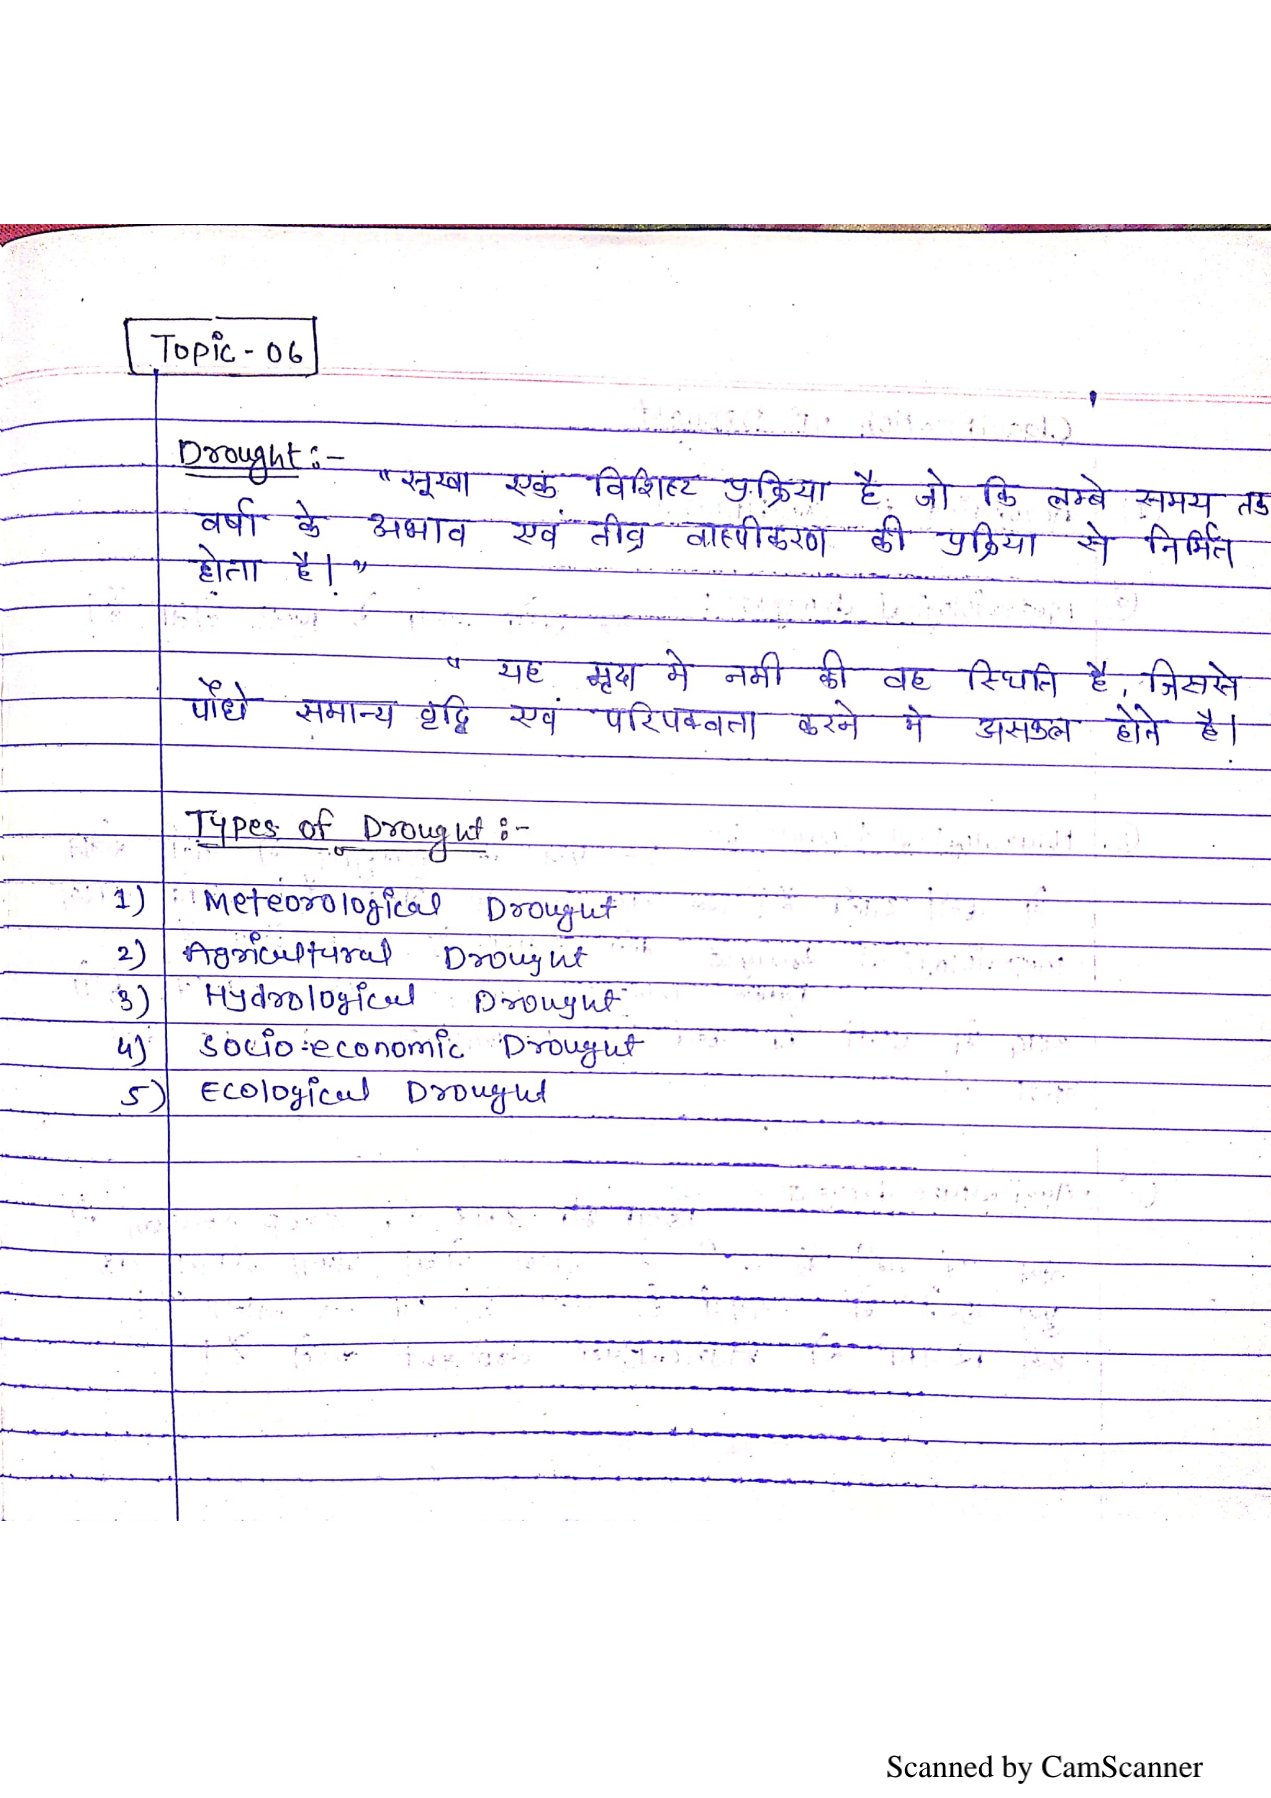 Topic - 06
Drought :-
"सूखा एक विशिष्ट प्रक्रिया है जो कि लम्बे समय तक
वर्षा के अभाव एवं तीव्र वाष्पीकरण की प्रक्रिया से निर्मित
होता है। "
" यह मृदा मे नमी की वह स्थिति है, जिससे
पौधे समान्य वृद्धि एवं परिपक्वता करने मे असफल होते है।
Types of Drought :-
1) Meteorological Drought
2) Agricultural Drought
3) Hydrological Drought
4) Socio-economic Drought
5) Ecological Drought
Scanned by CamScanner